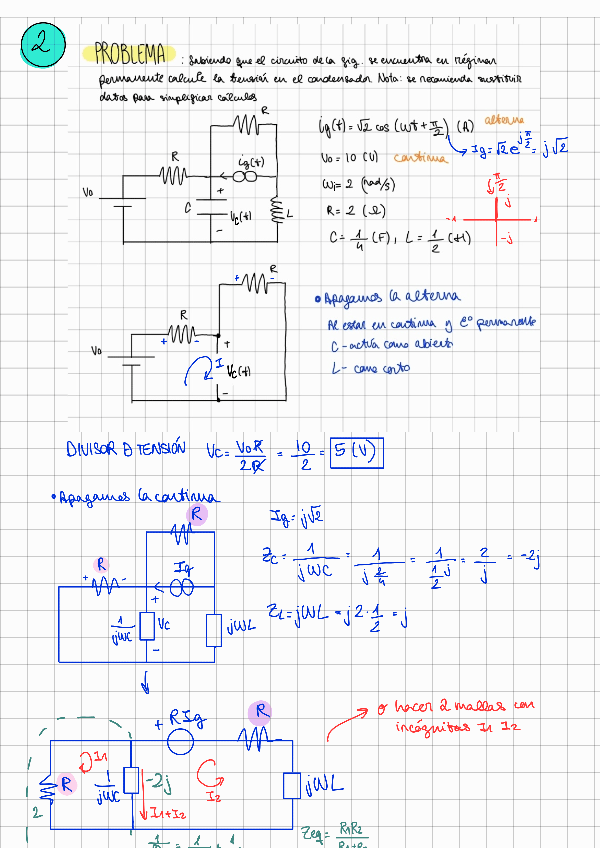 2
PROBLEMA : Sabiendo que el circuito de la fig. se encuentra en régimen
permanente calcule la tensión en el condensador Nota: se recomienda sustituir
datos para simplificar cálculos
R
ig(t) = √2 cos (ωt + π/2) (A) alterna
Ig = √2 e^{jπ/2} = j√2
R
ig(t)
V0 = 10 (V) continua
V0
+
C
Vc(t)
-
L
ω = 2 (rad/s)
R = 2 (Ω)
C = 1/4 (F), L = 1/2 (H)
π/2
j
-1
-j
+ R -
• Apagamos la alterna
Al estar en continua y eº permanente
C - actúa como abierto
L - como corto
R
+ -
V0
+
I
Vc(t)
-
DIVISOR D TENSIÓN Vc = V0R/2R = 10/2 = 5 (V)
• Apagamos la continua
R
Ig = j√2
+ R -
Ig
Zc = 1/jωC = 1/(j 2/4) = 1/(1/2 j) = 2/j = -2j
+
1/jωC
Vc
-
jωL
ZL = jωL = j2·1/2 = j
+ RIg
R
o hacer 2 mallas con
incógnitas I1 I2
I1
R
2
1/jωC
-2j
I2
jωL
I1+I2
Zeq = R1R2